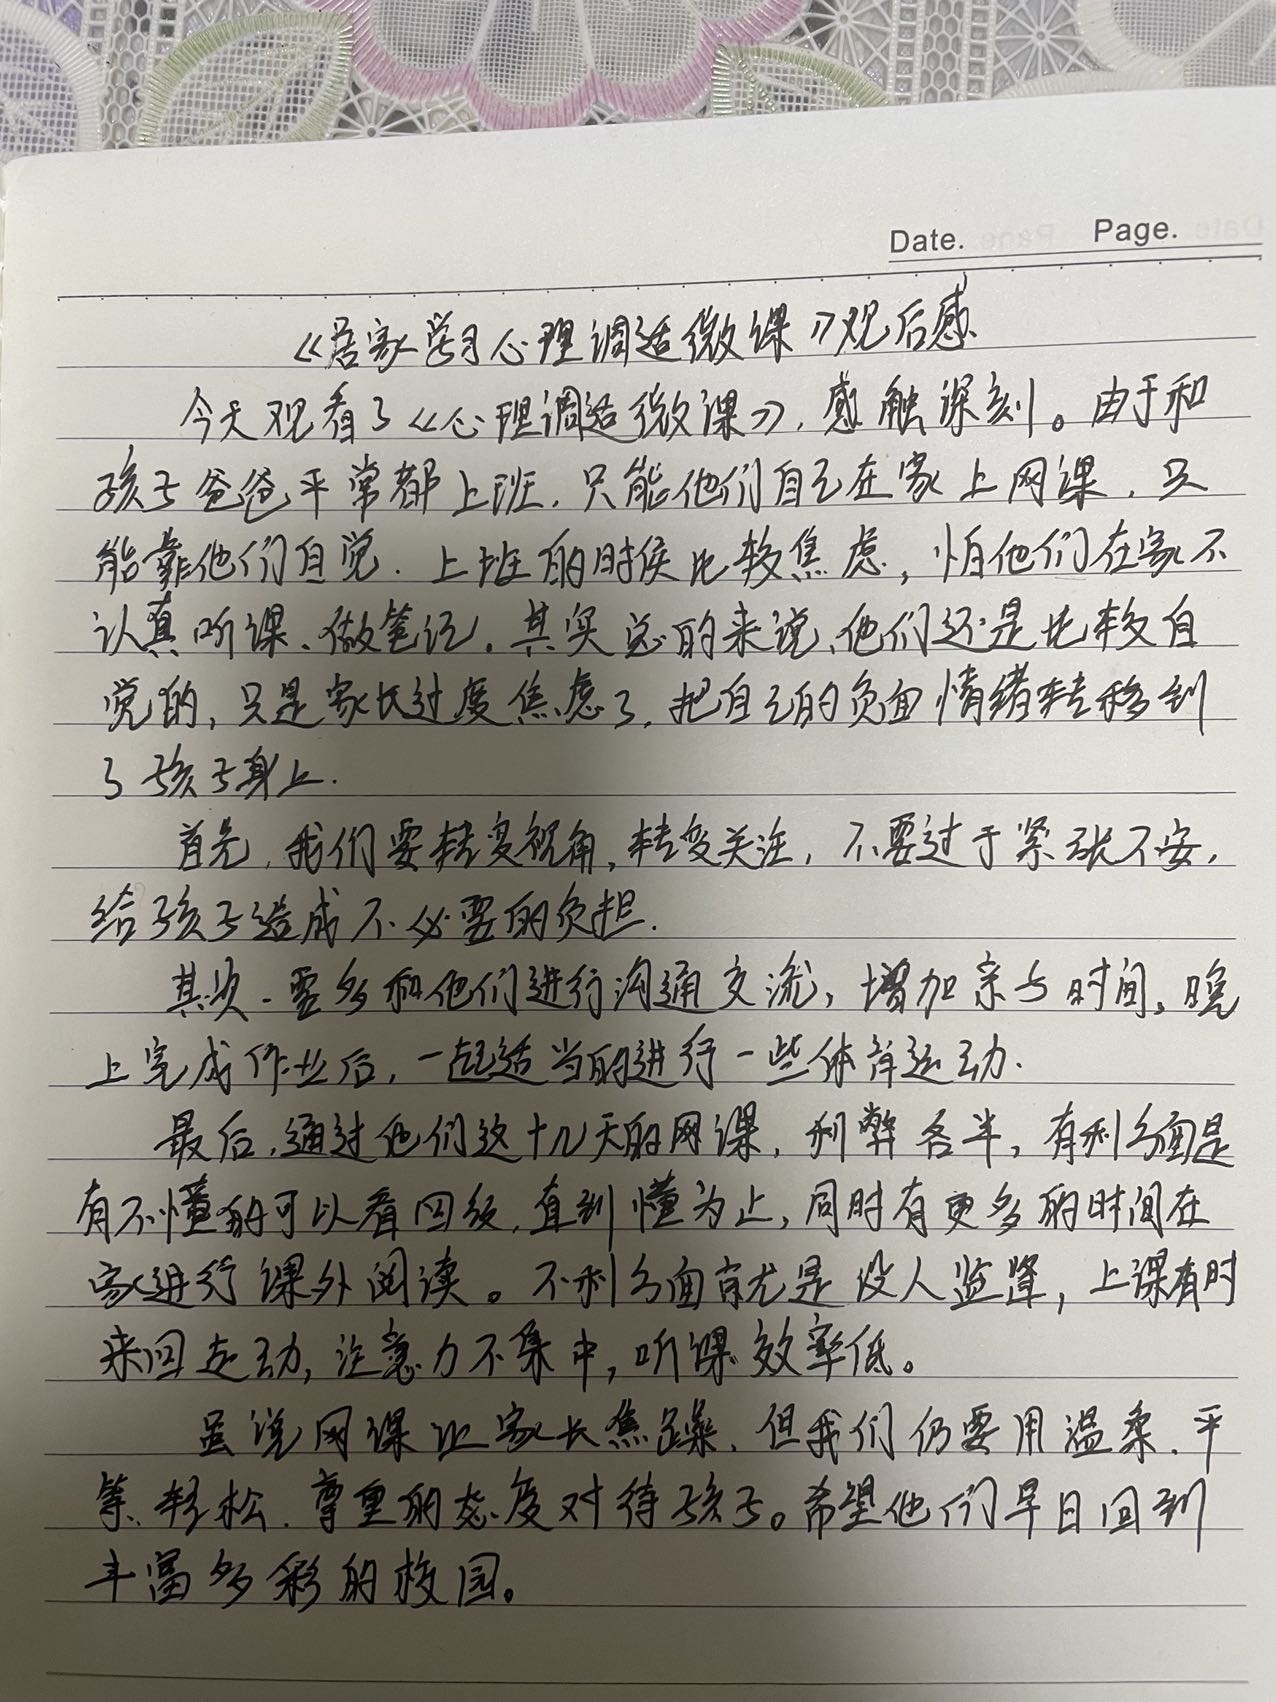 Date. Page.
《居家学习心理调适微课》观后感
今天观看了《心理调适微课》,感触深刻。由于和
孩子爸爸平常都上班,只能他们自己在家上网课,只
能靠他们自觉.上班的时侯比较焦虑,怕他们在家不
认真听课、做笔记.其实总的来说,他们还是比较自
觉的,只是家长过度焦虑了,把自己的负面情绪转移到
了孩子身上.
首先,我们要转变视角,转变关注,不要过于紧张不安,
给孩子造成不必要的负担.
其次.要多和他们进行沟通交流,增加亲子时间,晚
上完成作业后,一起适当的进行一些体育运动.
最后,通过他们这十几天的网课,利弊各半,有利方面是
有不懂的可以看回放,直到懂为止,同时有更多的时间在
家进行课外阅读。不利方面就是没人监督,上课有时
来回走动,注意力不集中,听课效率低。
虽说网课让家长焦躁,但我们仍要用温柔、平
等、轻松、尊重的态度对待孩子。希望他们早日回到
丰富多彩的校园。